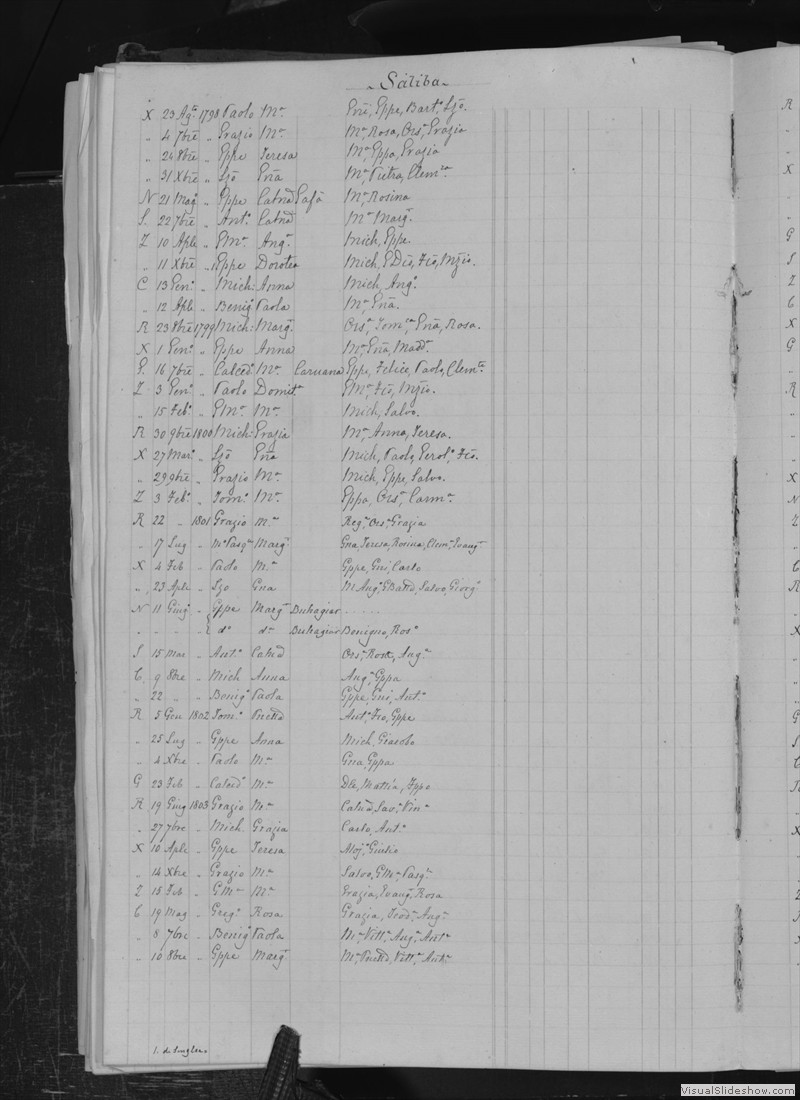 Saliba
X 23 Ag.to 1798 Paolo M.a Gni, Gppe, Bart.o Lzo.
„ 4 7bre „ Grazio M.a M.a Rosa, Ors.a Grazia
„ 24 8bre „ Gppe Teresa M.a Gppa, Grazia
„ 31 Xbre „ Lzo Gna M.a Pietra, Clem.ca
N 21 Mag.o „ Gppe Catnd M.a Rosina
S. 22 7bre „ Ant.o Catnd M.a Marg.a
Z 10 Aple „ GM.a Ang.a Mich, Gppe
„ 11 Xbre „ Gppe Dorotea Mich,
C 13 Gen.o „ Mich: Anna Mich, Ang.o
„ 12 Aple „ Benig.o Paola M.a Gna.
R 23 8bre 1799 Mich: Marg.a Ors.a Dom.ca Gna, Rosa.
X 1 Gen.o „ Gppe Anna M.a Gna, Madd.a
G. 16 7bre „ Calced.o M.a Caruana Gppe, Felice, Paolo, Clem.te
Z 3 Gen.o „ Paolo Domit.a
„ 15 Feb.o „ GM.a M.a Mich, Salvo.
R 30 9bre 1800 Mich: Grazia M.a Anna, Teresa.
X 27 Mar.o „ Lzo Gna Mich, Paolo, Gerol.o
„ 29 9bre „ Grazio M.a Mich, Gppe, Salvo.
Z 3 Feb.o „ Dom.o M.a Gppa, Ors.a Carm.a
R 22 „ 1801 Grazio M.a Reg.a Ors.a Grazia
„ 17 Lug „ Marg.a Gna, Teresa, Rosina, Clem.a Evang.a
X 4 Feb „ Paolo M.a Gppe, Gni, Carlo
„ 23 Aple „ Lzo Gna M. Ang.o GBatta, Salvo, Giorg.o
N 11 Giug.o „ Gppe Marg.a Buhagiar . . . . .
„ - - - „ { d.o d.a Buhagiar Benigno, Ros.o
S 15 Mar „ Ant.o Catnd Ors.a Rosa, Ang.a
C, 9 8bre „ Mich Anna Ang.a Gppa
„ 22 „ „ Benig.o Paola Gppe, Gni, Ant.o
R 5 Gen 1802 Dom.o Ant.o Gppe
„ 25 Lug „ Gppe Anna Mich, Giacobo
„ 4 Xbre „ Paolo M.a Gna, Gppa
G 23 Feb „ Calced.o M.a Mattia,
R 19 Giug 1803 Grazio M.a Catnd, Sav.a Vin.a
„ 27 7bre „ Mich Grazia Carlo, Ant.o
X 10 Aple „ Gppe Teresa Aloj.o Giulio
„ 14 Xbre „ Grazio M.a Salvo, GM.a Pasq.e
Z 15 Feb „ GM.a M.a Grazia, Evang.a Rosa
C 19 Mag „ Greg.o Rosa Grazia, Teod.a Ang.a
„ 8 7bre „ Benig.o Paola M.a Vitt.a Ang.a Ant.a
„ 10 8bre „ Gppe Marg.a M.a Vitt.a Ant.a
R
X
G
S
Z
C
X
G
R
X
N
Z
C
R
X
G
S
C
R
X
Z
R
X
VisualSlideshow.com